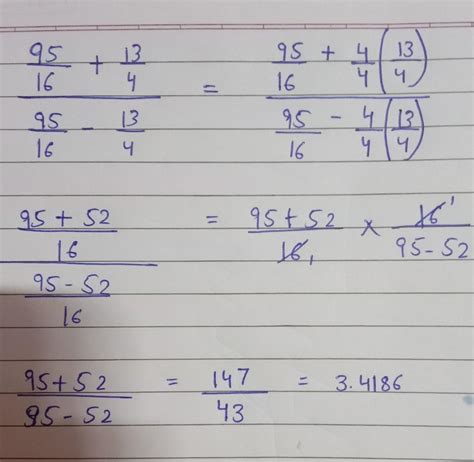 95/16 + 13/4 / 95/16 - 13/4 = 95/16 + 4/4 (13/4) / 95/16 - 4/4 (13/4)
95 + 52 / 16 / 95 - 52 / 16 = 95 + 52 / 16 1 × 16 1 / 95 - 52
95 + 52 / 95 - 52 = 147 / 43 = 3.4186